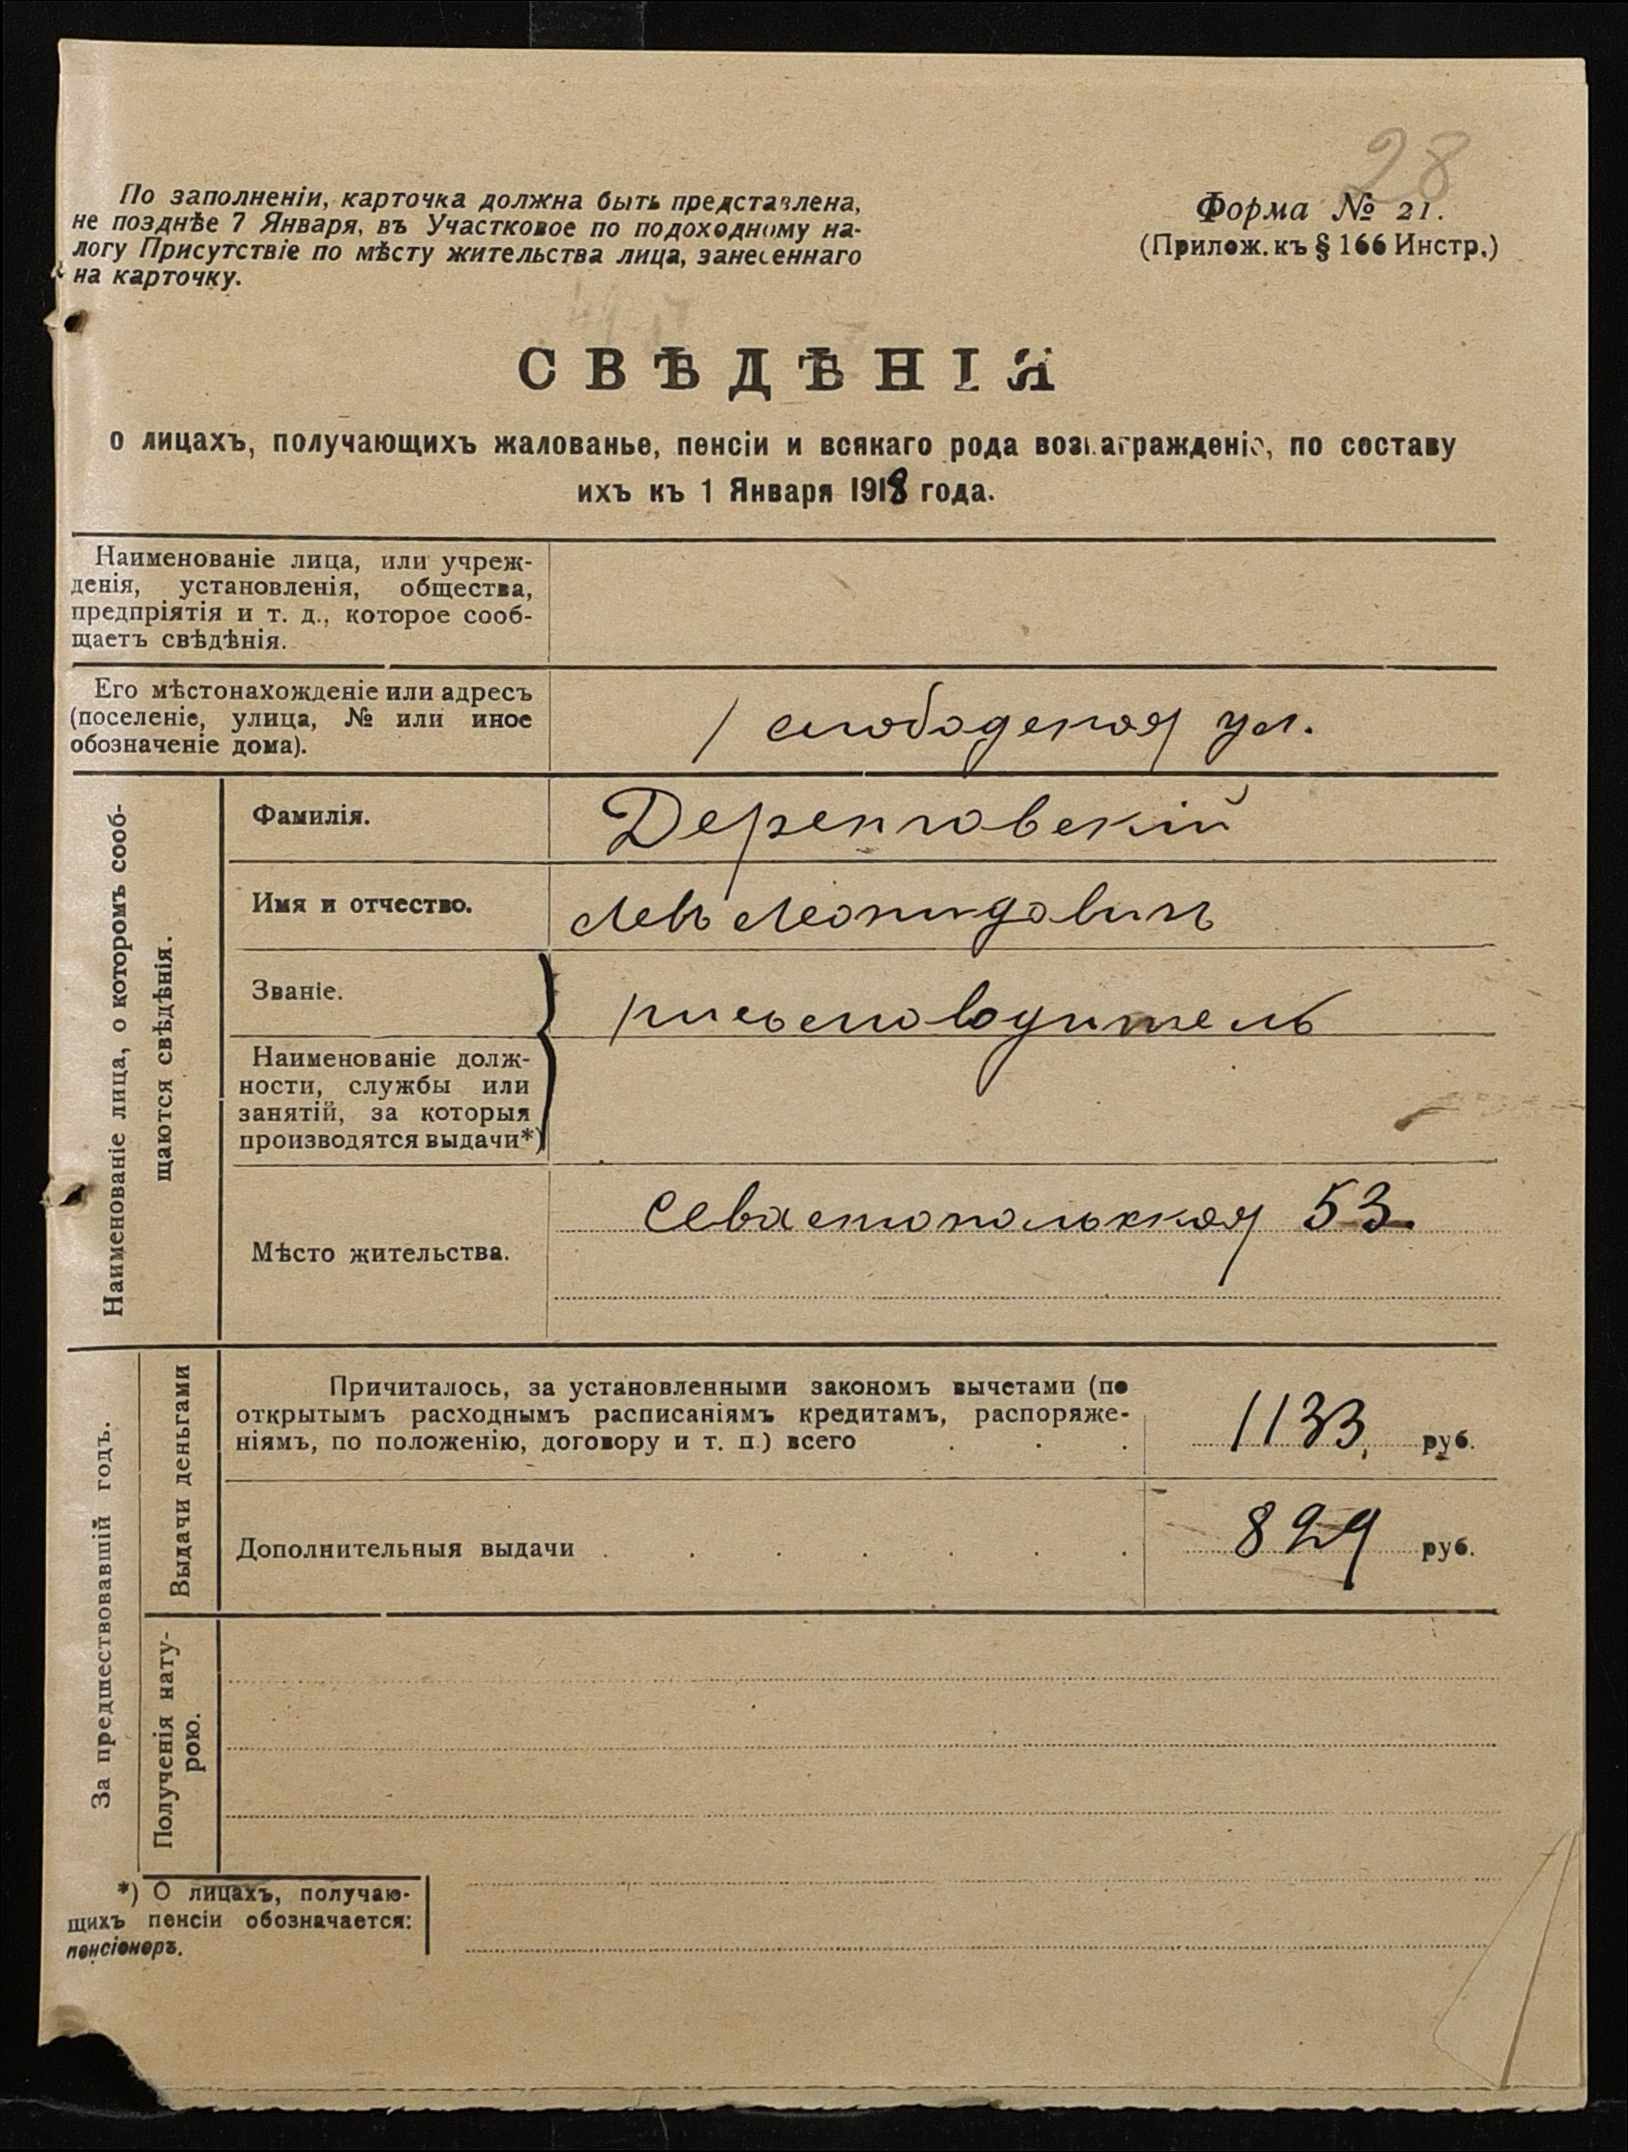 28
По заполненіи, карточка должна быть представлена,
не позднѣе 7 Января, въ Участковое по подоходному на-
логу Присутствіе по мѣсту жительства лица, занесеннаго
на карточку.
Форма № 21.
(Прилож. къ § 166 Инстр.)
СВѢДѢНІЯ
о лицахъ, получающихъ жалованье, пенсіи и всякаго рода вознагражденіе, по составу
ихъ къ 1 Января 1918 года.
Наименованіе лица, или учреж-
денія, установленія, общества,
предпріятія и т. д., которое сооб-
щаетъ свѣдѣнія.
Его мѣстонахожденіе или адресъ
(поселеніе, улица, № или иное
обозначеніе дома).
1 слободская ул.
Наименованіе лица, о которомъ сооб-
щаются свѣдѣнія.
Фамилія.
Деренговскій
Имя и отчество.
Левъ Леонидовичъ
Званіе.
письмоводитель
Наименованіе долж-
ности, службы или
занятій, за которыя
производятся выдачи*)
Мѣсто жительства.
Севастопольккая 53.
За предшествовавшій годъ.
Выдачи деньгами
Причиталось, за установленными закономъ вычетами (по
открытымъ расходнымъ расписаніямъ кредитамъ, распоряже-
ніямъ, по положенію, договору и т. п.) всего . . .
1133, руб.
Дополнительныя выдачи . . . . . . .
829 руб.
Полученія нату-
рою.
*) О лицахъ, получаю-
щихъ пенсіи обозначается:
пенсіонеръ.